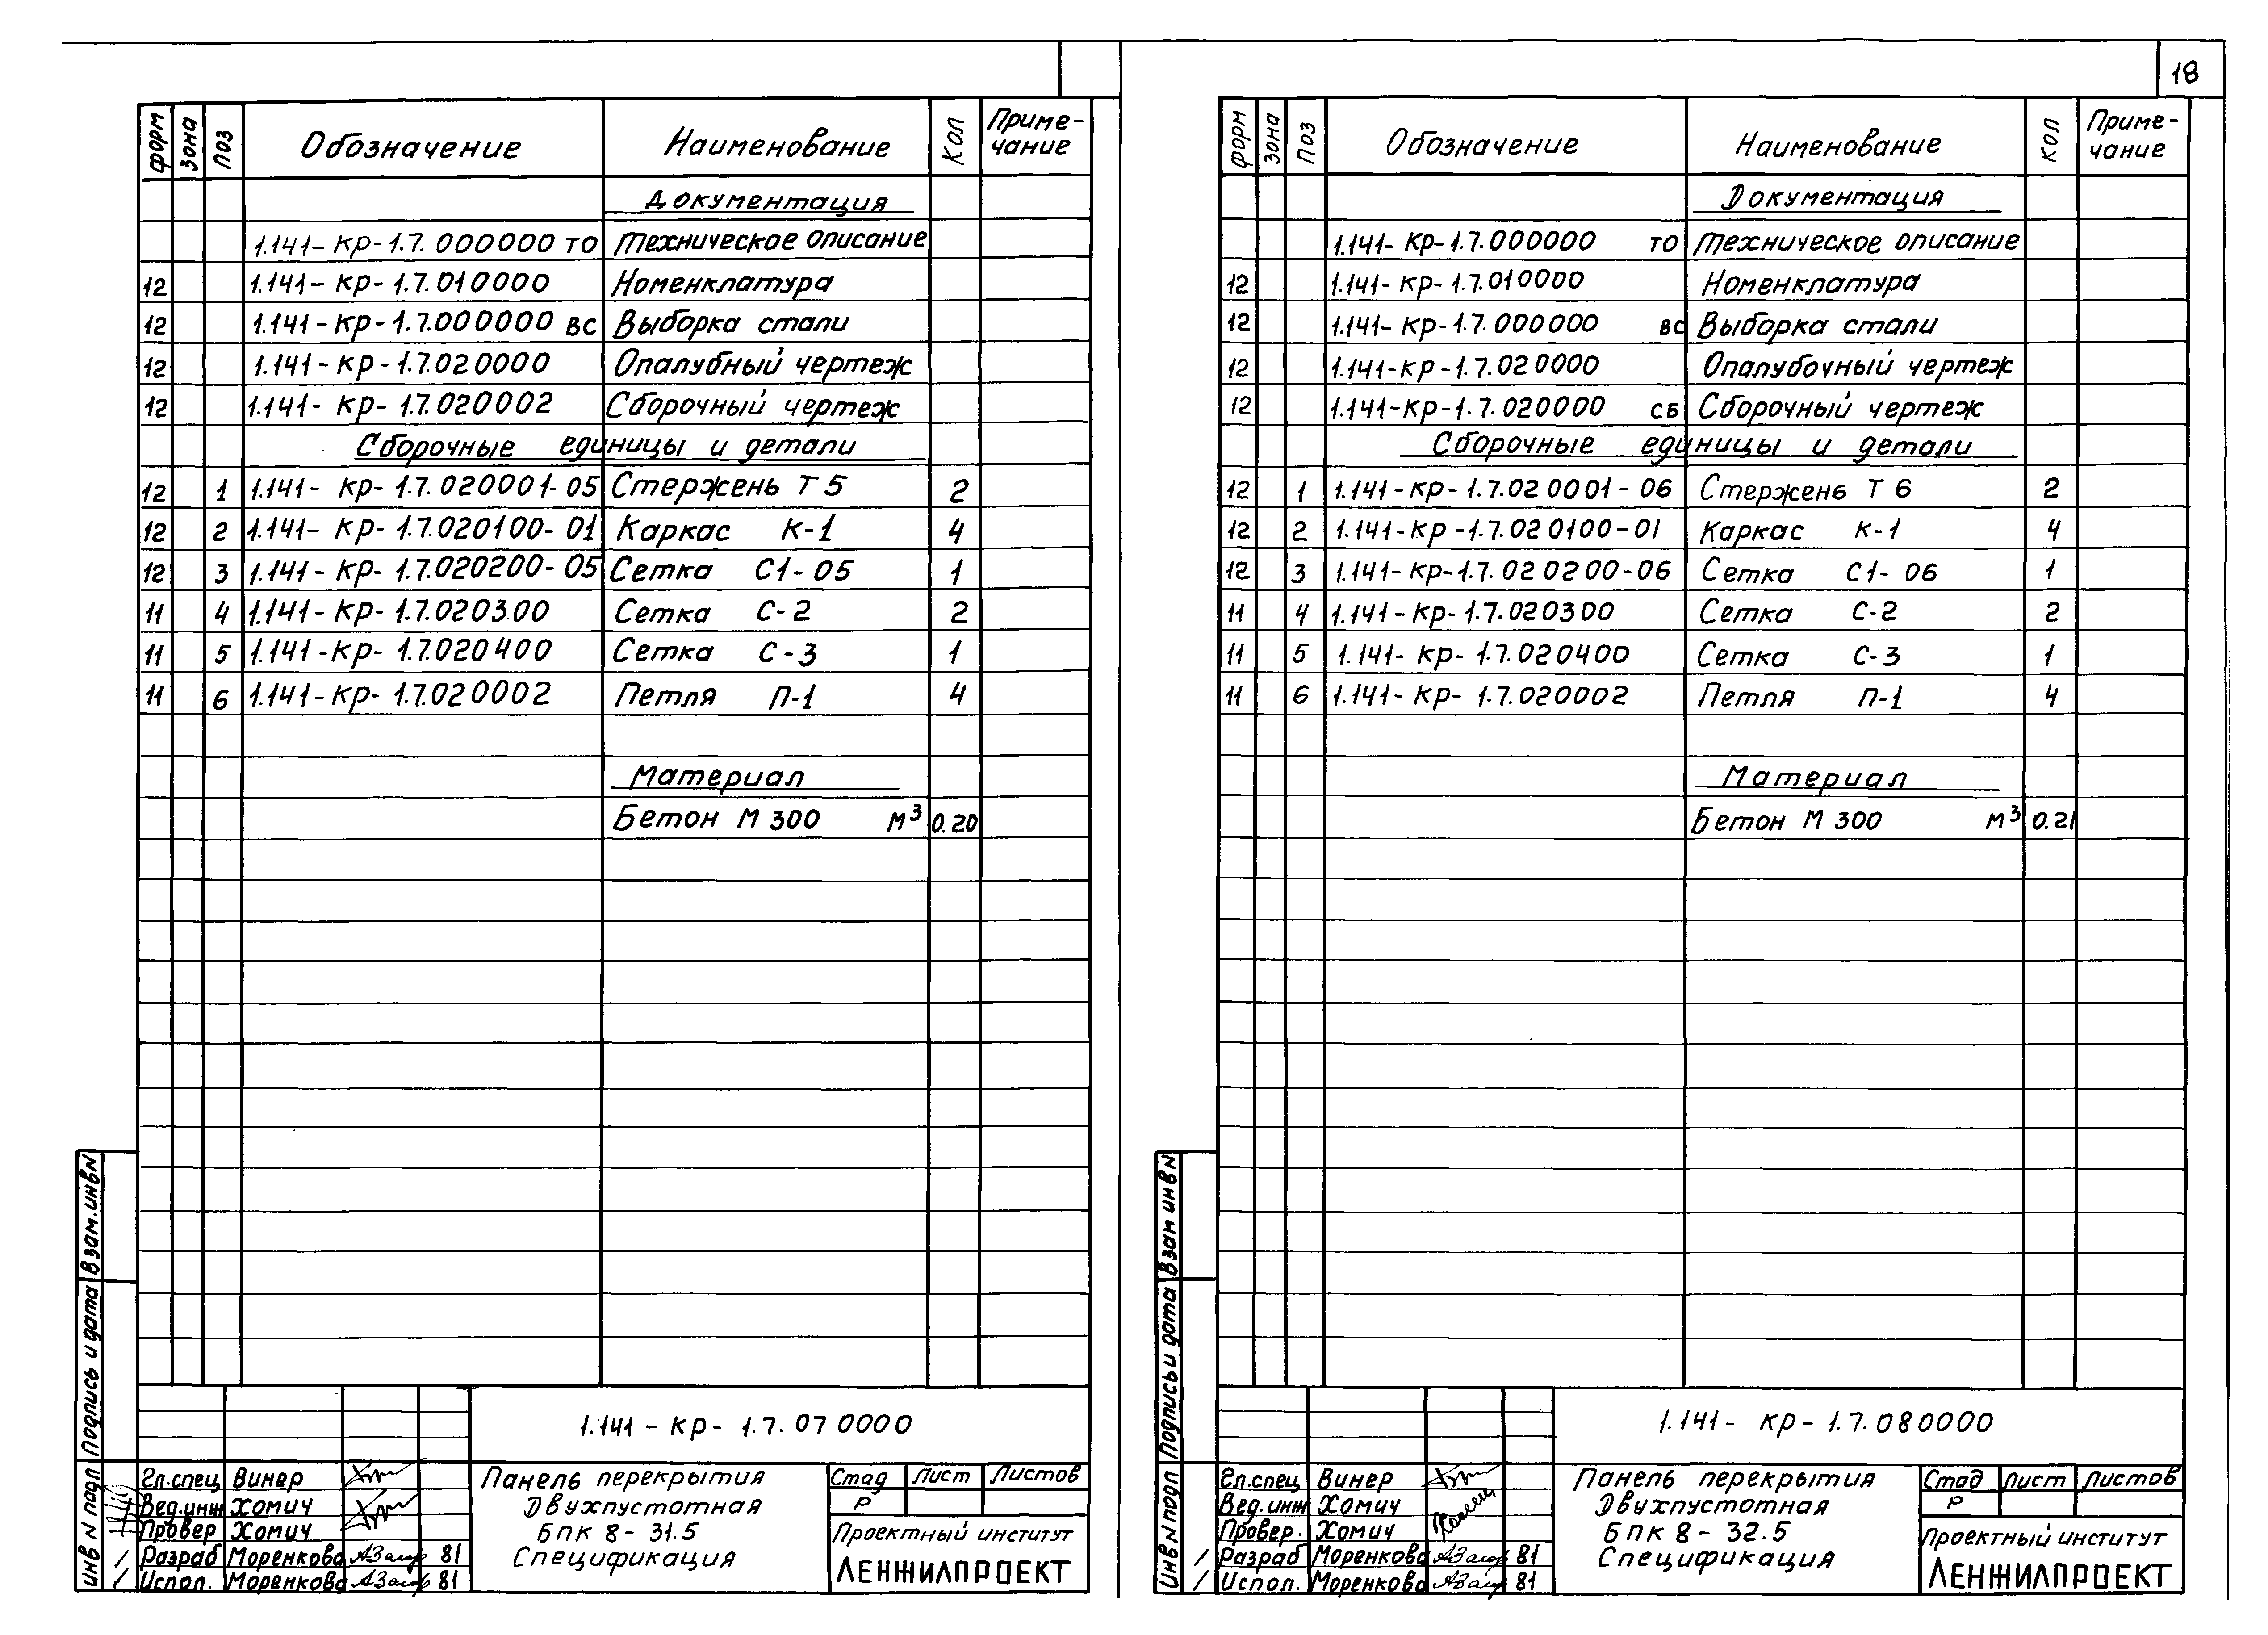 форм зона Поз Обозначение Наименование Кол Приме-
чание
Документация
1.141-кр-1.7.000000 ТО Техническое описание
12 1.141-кр-1.7.010000 Номенклатура
12 1.141-кр-1.7.000000 ВС Выборка стали
12 1.141-кр-1.7.020000 Опалубный чертеж
12 1.141-кр-1.7.020002 Сборочный чертеж
Сборочные единицы и детали
12 1 1.141-кр-1.7.020001-05 Стержень Т5 2
12 2 1.141-кр-1.7.020100-01 Каркас К-1 4
12 3 1.141-кр-1.7.020200-05 Сетка С1-05 1
11 4 1.141-кр-1.7.020300 Сетка С-2 2
11 5 1.141-кр-1.7.020400 Сетка С-3 1
11 6 1.141-кр-1.7.020002 Петля П-1 4
Материал
Бетон М 300 м³ 0.20
Взам.инвN
Подпись и дата
Инв N подл
1.141-кр-1.7.070000
Гл.спец Винер
Вед.инж Хомич
Провер Хомич
Разраб Моренкова 81
Испол. Моренкова 81
Панель перекрытия
Двухпустотная
БПК 8-31.5
Спецификация
Стад Лист Листов
Р
Проектный институт
ЛЕНЖИЛПРОЕКТ
18
форм зона Поз Обозначение Наименование Кол Приме-
чание
Документация
1.141-кр-1.7.000000 ТО Техническое описание
12 1.141-кр-1.7.010000 Номенклатура
12 1.141-кр-1.7.000000 ВС Выборка стали
12 1.141-кр-1.7.020000 Опалубочный чертеж
12 1.141-кр-1.7.020000 СБ Сборочный чертеж
Сборочные единицы и детали
12 1 1.141-кр-1.7.020001-06 Стержень Т6 2
12 2 1.141-кр-1.7.020100-01 Каркас К-1 4
12 3 1.141-кр-1.7.020200-06 Сетка С1-06 1
11 4 1.141-кр-1.7.020300 Сетка С-2 2
11 5 1.141-кр-1.7.020400 Сетка С-3 1
11 6 1.141-кр-1.7.020002 Петля П-1 4
Материал
Бетон М 300 м³ 0.21
Взам инвN
Подпись и дата
Инв N подл
1.141-кр-1.7.080000
Гл.спец Винер
Вед.инж Хомич
Провер. Хомич
Разраб Моренкова 81
Испол. Моренкова 81
Панель перекрытия
Двухпустотная
БПК 8-32.5
Спецификация
Стад Лист Листов
Р
Проектный институт
ЛЕНЖИЛПРОЕКТ